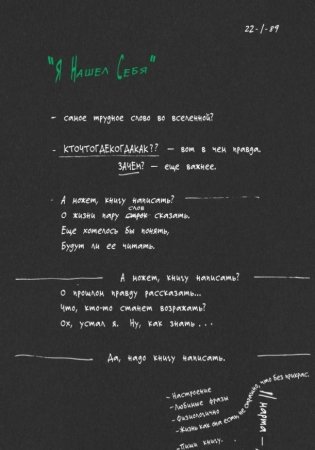 22-1-89
"Я Нашел Себя"
- самое трудное слово во вселенной?
- КТОЧТОГДЕКОГДАКАК?? - вот в чем правда.
ЗАЧЕМ? - еще важнее.
А может, книгу написать?
слов
О жизни пару строк сказать.
Еще хотелось бы понять,
Будут ли ее читать.
А может, книгу написать?
О прошлом правду рассказать...
Что, кто-то станет возражать?
Ох, устал я. Ну, как знать...
Да, надо книгу написать.
- Настроение
- Любимые фразы
- Физиологично
- Жизнь как она есть, не страшно, что без прикрас.
- Пиши книгу.
марта -